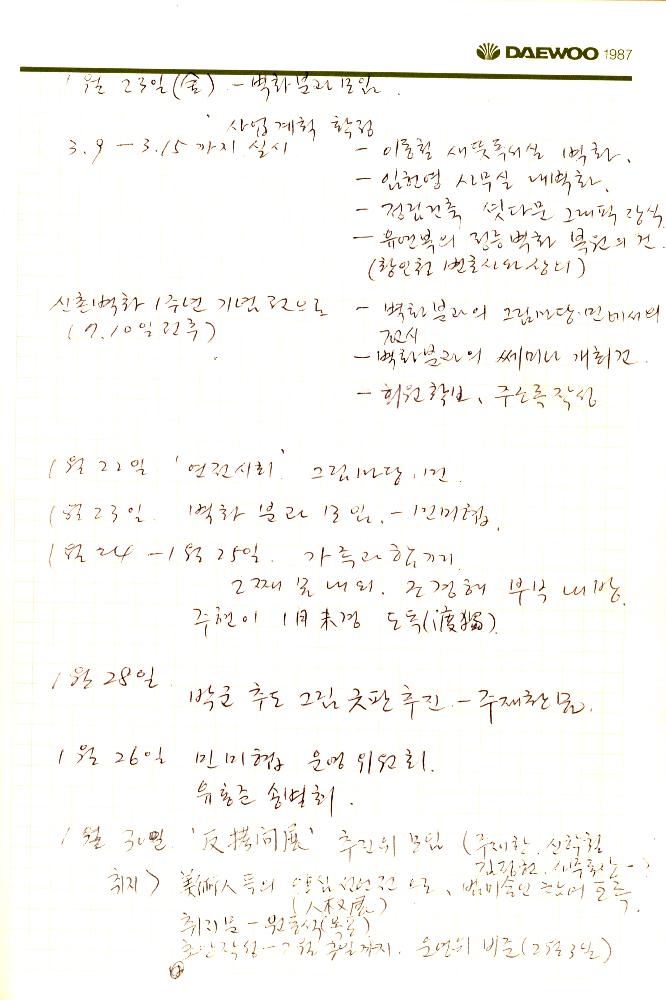 DAEWOO 1987
1월 23일(金) - 벽화분과 모임.
사업계획 확정
3.9 - 3.15 까지 실시 - 이동철 새뜻독서실 벽화.
- 임헌영 사무실 내벽화.
- 정림건축 셧다문 그래픽 장식
- 유연복의 정릉벽화 복원의 건.
(황인철 변호사와 상의)
신촌벽화 1주년 기념전으로 - 벽화분과의 그림마당·민에서의
(7.10일 전후) 전시
- 벽화분과의 쎄미나 개최건.
- 회원확보, 주소록작성
1월 22일 '연전시회' 그림마당·민.
1월 23일. 벽화 분과 모임. - 민미협.
1월 24 - 1월 25일. 가족과 함께.
조경해 부부 내방.
주현이 1月末경 도독(渡獨).
1월 28일. 박군 추도 그림 굿판 추진. - 주재환
1월 26일 민미협 운영위원회.
유홍준 송별회.
1월 30일 '反拷問展' 추진위 모임 (주재환. 신학철
취지> 美術人들의 양심선언전으로, 범미술인 토록
(人权展)
취지문 - 원동석(목포)
초안작성 - 2월 까지. 운영위 비준(2월 3일)